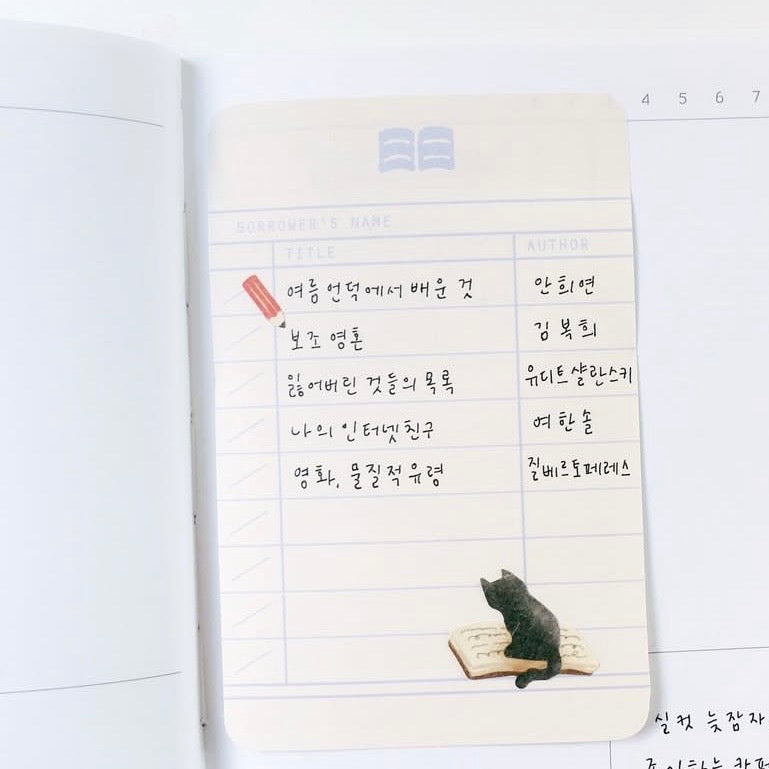 4 5 6 7
BORROWER'S NAME
TITLE AUTHOR
여름 언덕에서 배운 것 안희연
보조 영혼 김복희
잃어버린 것들의 목록 유디트샬란스키
나의 인터넷친구 여한솔
영화, 물질적 유령 질베르토페레스
실컷 늦잠자